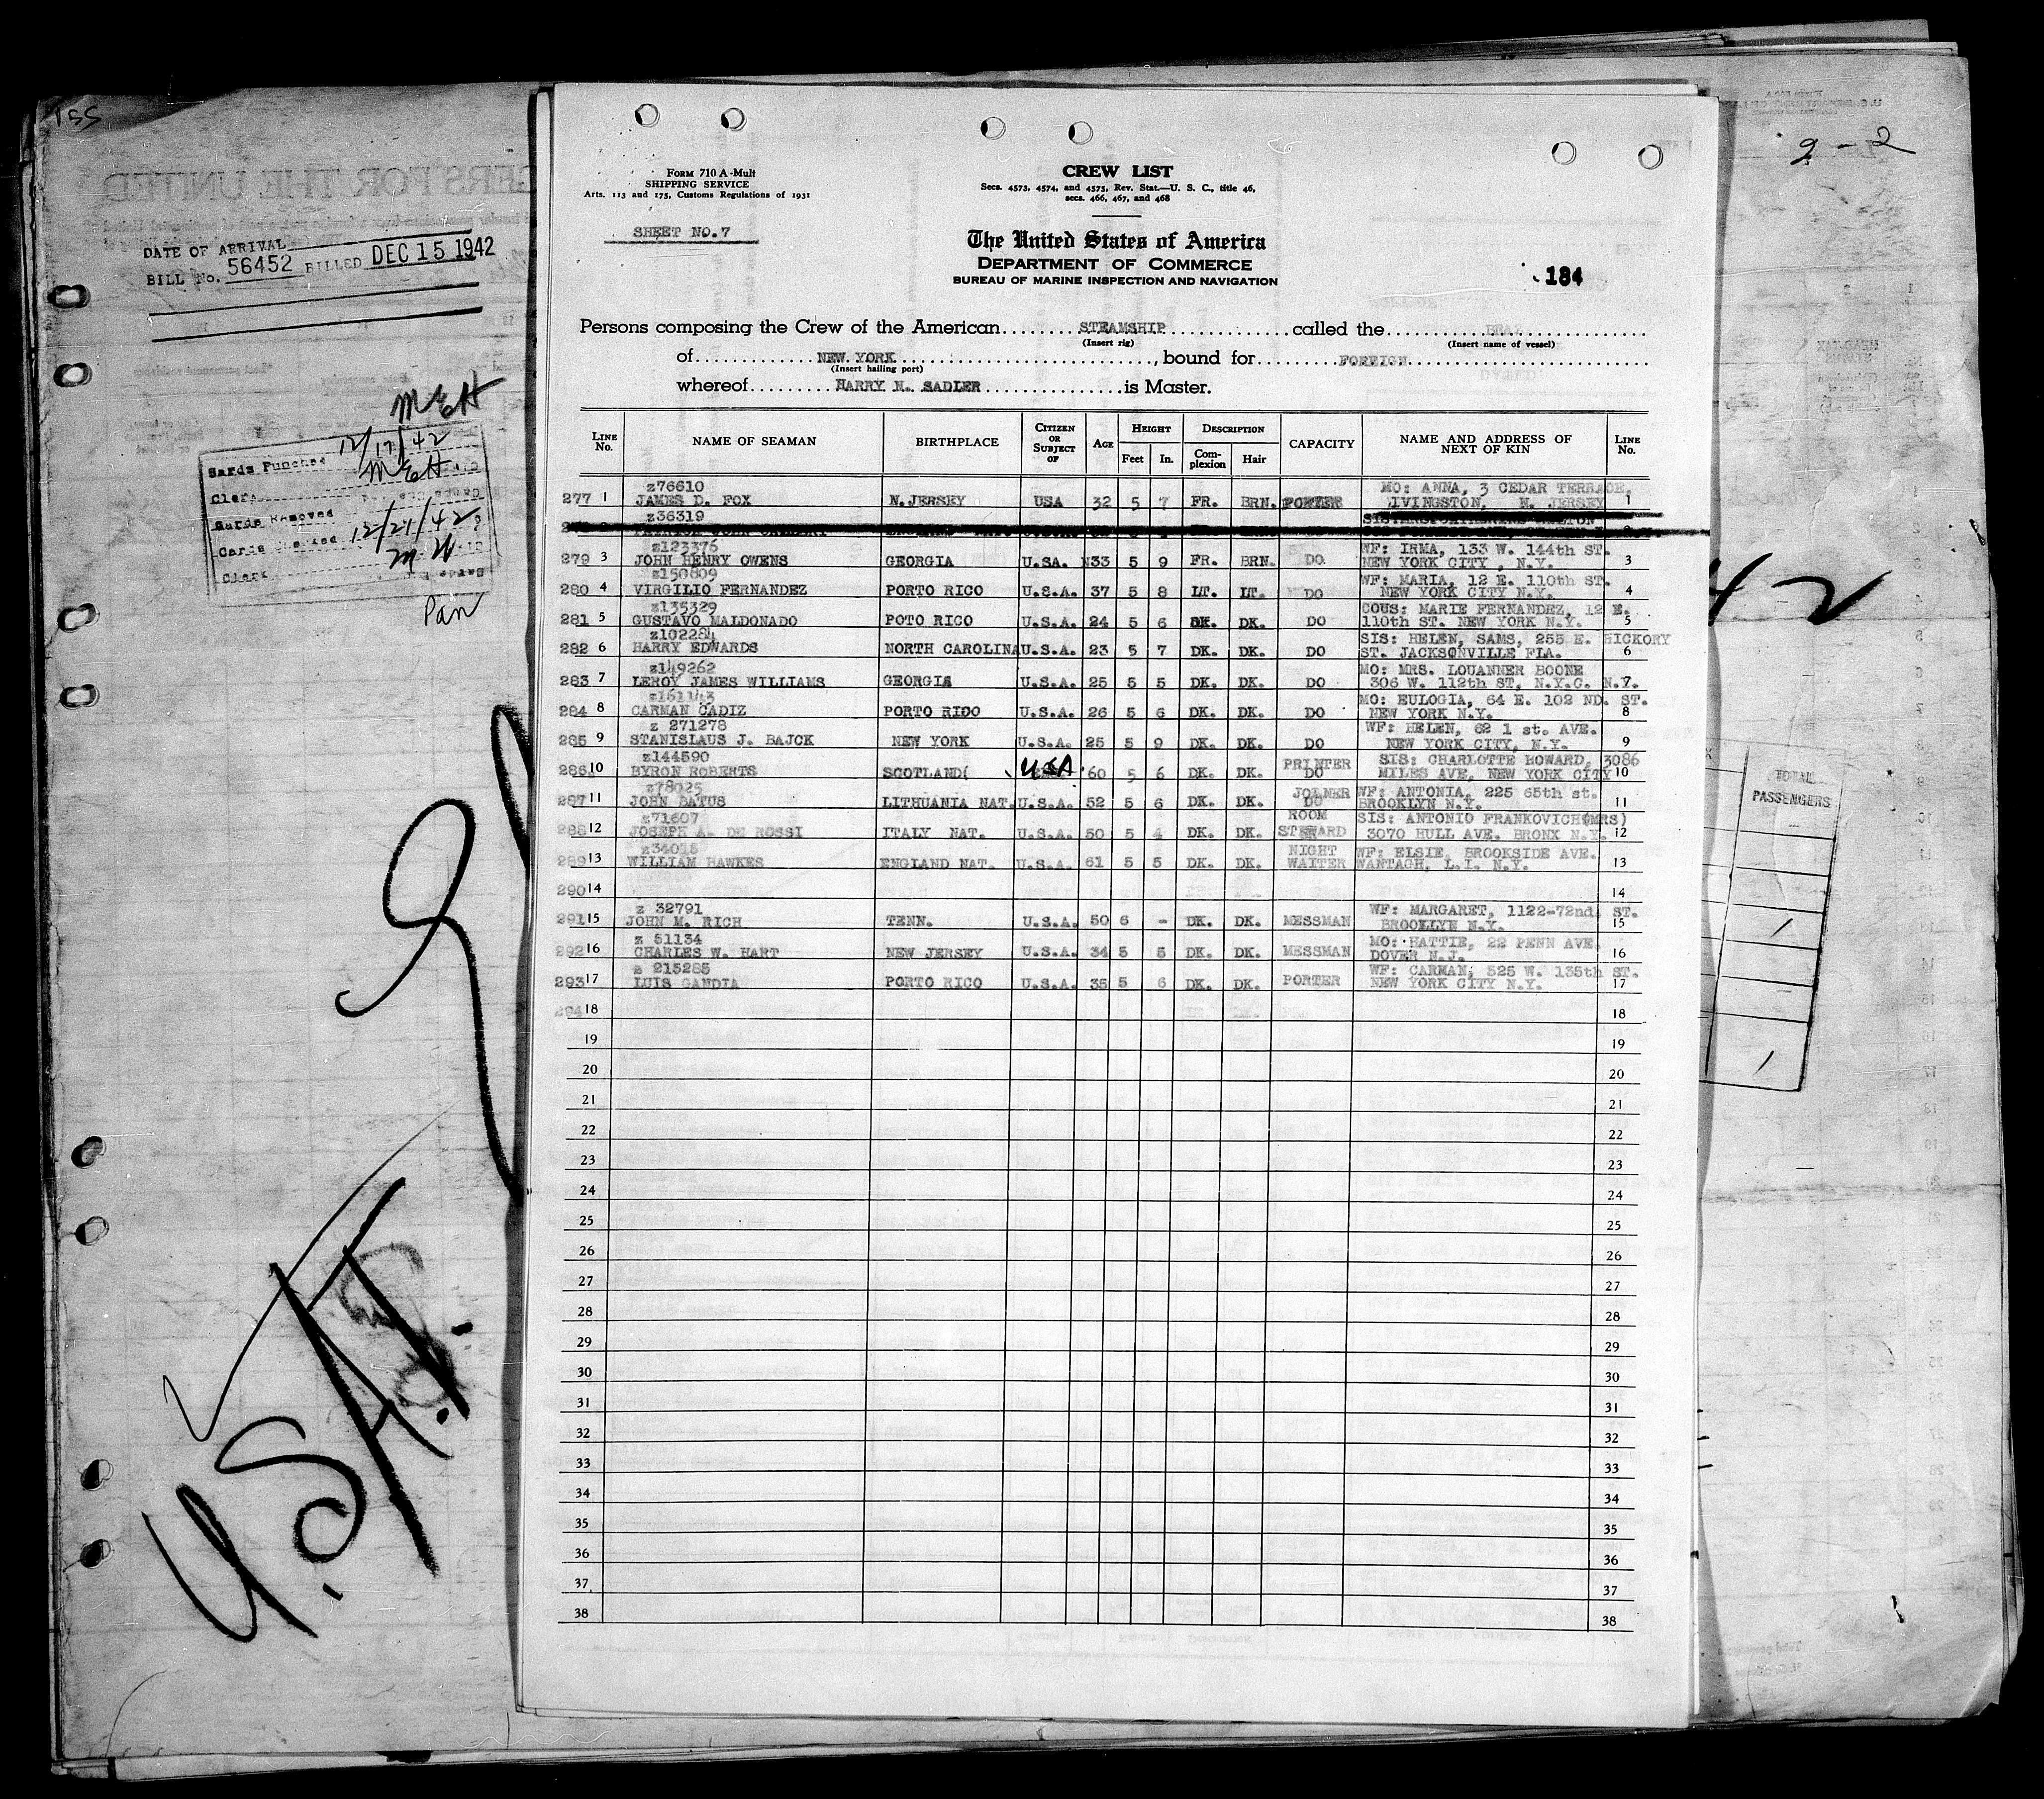 155
DATE OF ARRIVAL
BILL No. 56452 BILLED DEC 15 1942
MEH
Cards Punched 12/17/42
Clerk MEH
Cards Removed
Cards Checked 12/21/42
Clerk
Pan
U.S.A.T.
2-2
TOTAL
PASSENGERS
Form 710 A-Mult
SHIPPING SERVICE
Arts. 113 and 175, Customs Regulations of 1931
SHEET NO.7
CREW LIST
Secs. 4573, 4574, and 4575, Rev. Stat.—U. S. C., title 46,
secs. 466, 467, and 468
The United States of America
DEPARTMENT OF COMMERCE
BUREAU OF MARINE INSPECTION AND NAVIGATION
184
Persons composing the Crew of the American STEAMSHIP called the
(Insert rig) (Insert name of vessel)
of NEW YORK, bound for FOREIGN
(Insert hailing port)
whereof HARRY N. SADLER is Master.
LINE No. NAME OF SEAMAN BIRTHPLACE CITIZEN OR SUBJECT OF AGE HEIGHT Feet In. DESCRIPTION Complexion Hair CAPACITY NAME AND ADDRESS OF NEXT OF KIN LINE No.
z76610 MO: ANNA, 3 CEDAR TERRACE
277 1 JAMES D. FOX N.JERSEY USA 32 5 7 FR. BRN. PORTER LIVINGSTON, N. JERSEY 1
z36319
z123376 WF: IRMA, 133 W. 144th ST.
279 3 JOHN HENRY OWENS GEORGIA U.SA. N33 5 9 FR. BRN. DO NEW YORK CITY, N.Y. 3
z150809 WF: MARIA, 12 E. 110th ST.
280 4 VIRGILIO FERNANDEZ PORTO RICO U.S.A. 37 5 8 LT. LT. DO NEW YORK CITY N.Y. 4
z135329 COUS: MARIE FERNANDEZ, 12 E.
281 5 GUSTAVO MALDONADO POTO RICO U.S.A. 24 5 6 DK. DK. DO 110th ST. NEW YORK N.Y. 5
z102284 SIS: HELEN, SAMS, 255 E. HICKORY
282 6 HARRY EDWARDS NORTH CAROLINA U.S.A. 23 5 7 DK. DK. DO ST. JACKSONVILLE FLA. 6
z149262 MO: MRS. LOUANNER BOONE
283 7 LEROY JAMES WILLIAMS GEORGIA U.S.A. 25 5 5 DK. DK. DO 306 W. 112th ST, N.Y.C. N.Y. 7
z161143 MO: EULOGIA, 64 E. 102 ND. ST.
284 8 CARMAN CADIZ PORTO RICO U.S.A. 26 5 6 DK. DK. DO NEW YORK N.Y. 8
z 271278 WF: HELEN, 62 1 st. AVE.
285 9 STANISLAUS J. BAJCK NEW YORK U.S.A. 25 5 9 DK. DK. DO NEW YORK CITY, N.Y. 9
z144590 PRINTER SIS: CHARLOTTE HOWARD, 3086
286 10 BYRON ROBERTS SCOTLAND( USA 60 5 6 DK. DK. DO MILES AVE, NEW YORK CITY 10
z78025 JOINER WF: ANTONIA, 225 65th st.
287 11 JOHN BATUS LITHUANIA NAT. U.S.A. 52 5 6 DK. DK. DO BROOKLYN N.Y. 11
z71607 ROOM SIS: ANTONIO FRANKOVICH(MRS)
288 12 JOSEPH A. DE ROSSI ITALY NAT. U.S.A. 50 5 4 DK. DK. STEWARD 3070 HULL AVE. BRONX N.Y. 12
z34018 NIGHT WF: ELSIE, BROOKSIDE AVE.
289 13 WILLIAM HAWKES ENGLAND NAT. U.S.A. 61 5 5 DK. DK. WAITER WANTAGH, L.I. N.Y. 13
290 14 14
z 32791 WF: MARGARET, 1122-72nd. ST.
291 15 JOHN M. RICH TENN. U.S.A. 50 6 - DK. DK. MESSMAN BROOKLYN N.Y. 15
z 51134 MO: HATTIE, 22 PENN AVE.
292 16 CHARLES W. HART NEW JERSEY U.S.A. 34 5 5 DK. DK. MESSMAN DOVER N.J. 16
z 215285 WF: CARMAN, 525 W. 135th ST.
293 17 LUIS GANDIA PORTO RICO U.S.A. 35 5 6 DK. DK. PORTER NEW YORK CITY N.Y. 17
294 18 18
19 19
20 20
21 21
22 22
23 23
24 24
25 25
26 26
27 27
28 28
29 29
30 30
31 31
32 32
33 33
34 34
35 35
36 36
37 37
38 38